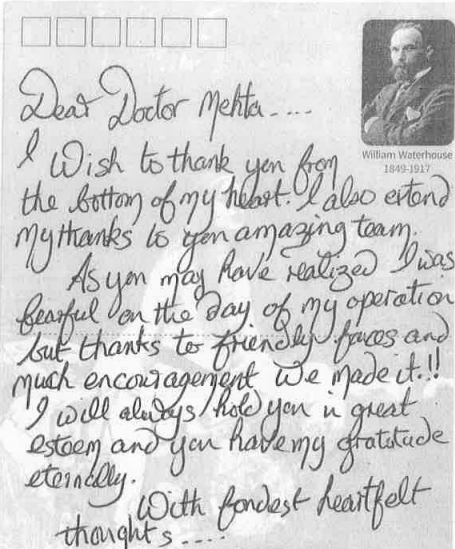 Dear Doctor Mehta....
William Waterhouse
1849-1917
I Wish to thank you from
the bottom of my heart. I also extend
my thanks to you amazing team.
As you may have realized I was
fearful on the day of my operation
but thanks to friendly faces and
much encouragement we made it.!!
I will always hold you in great
esteem and you have my gratitude
eternally.
With fondest heartfelt
thoughts....